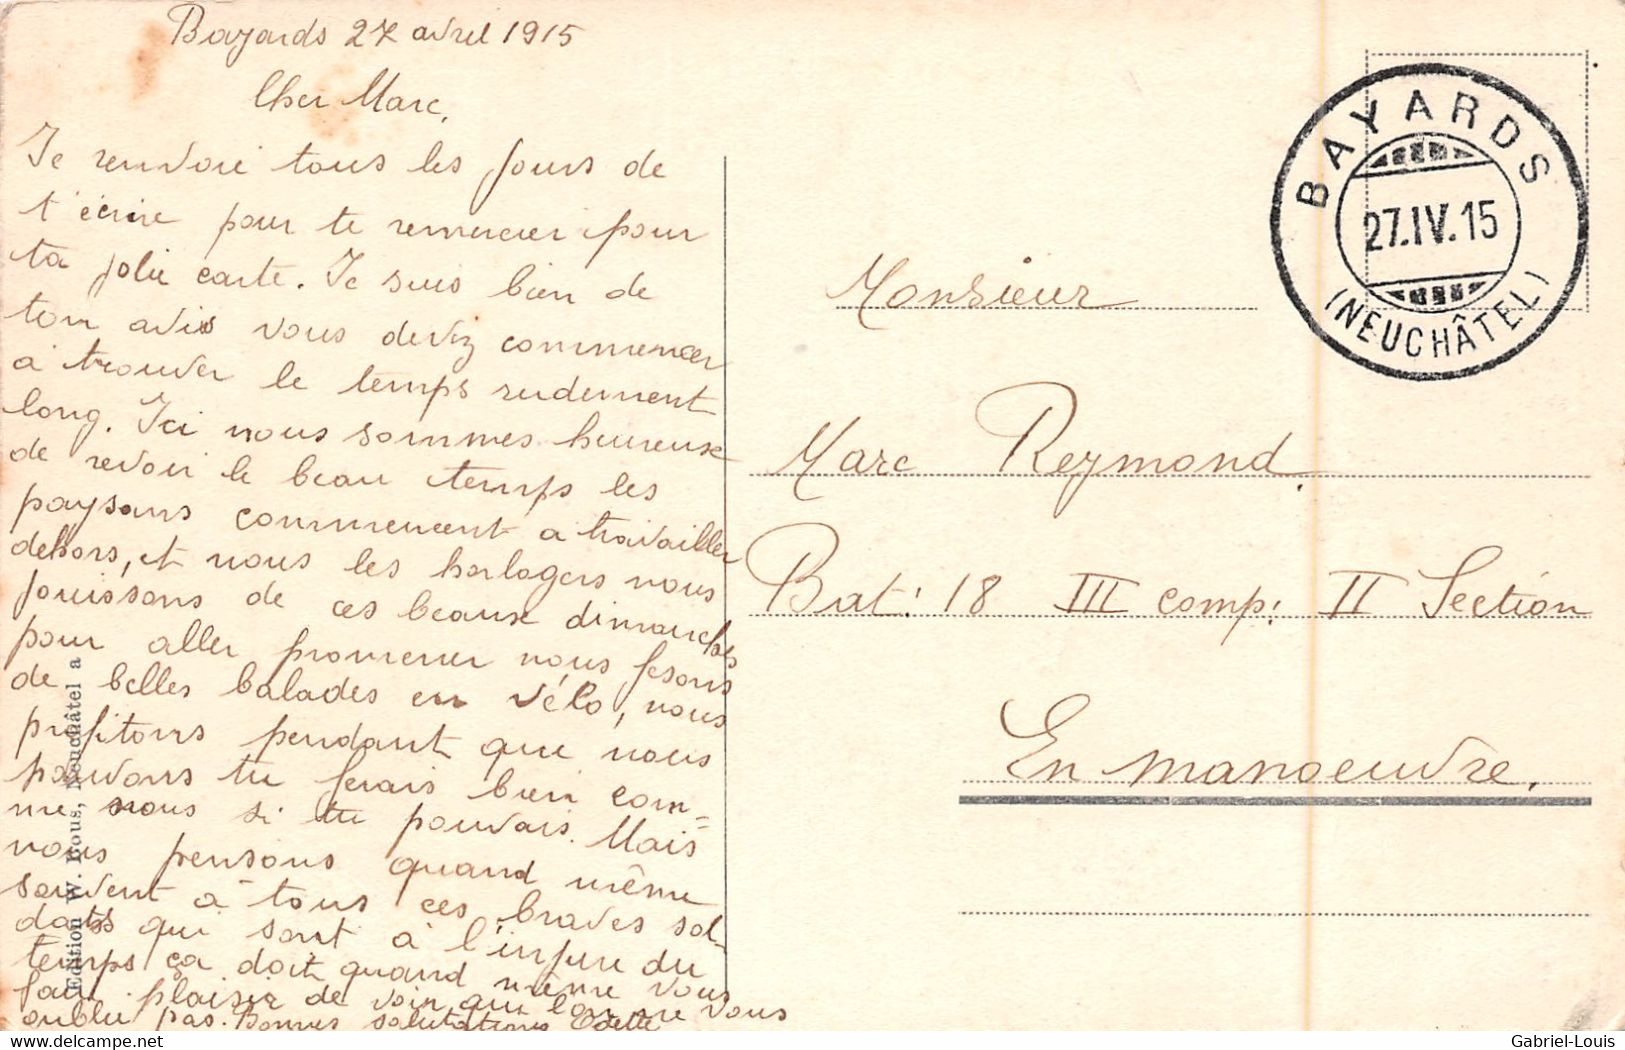 Bayards 27 avril 1915
Cher Marc,
Je renvoie tous les jours de
t'écrire pour te remercier pour
ta jolie carte. Je suis bien de
ton avis vous devez commencer
a trouver le temps rudement
long. Ici nous sommes heureuse
de revoir le beau temps les
paysans commencent a travailler
dehors, et nous les horlogers nous
jouissons de ces beaux dimanches
pour aller promener nous fesons
de belles balades en vélo, nous
profitons pendant que nous
pouvons tu ferais bien com=
me nous si tu pouvais. Mais
nous pensons quand même
souvent à tous ces braves sol-
dats qui sont à l'injure du
temps ça doit quand même vous
faire plaisir de voir que l'on ne vous
oublie pas. Bonnes salutations Odette
Edition W. Bous, Neuchâtel a
BAYARDS
27.IV.15
(NEUCHÂTEL)
Monsieur
Marc Reymond
Bat: 18 III comp: II Section
En manoeuvre.
www.delcampe.net
Gabriel-Louis